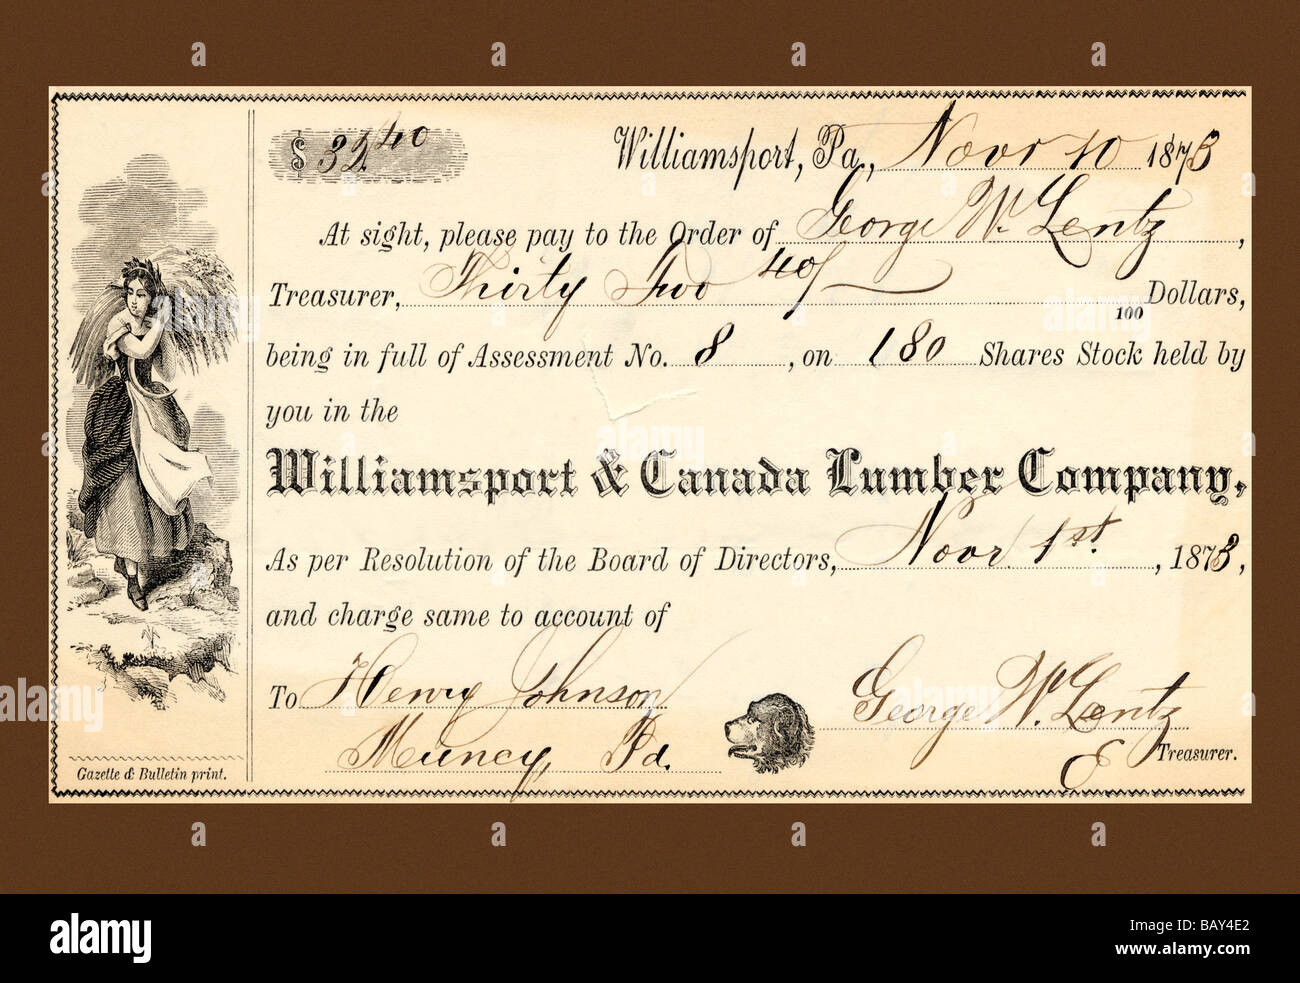 $ 32 40 Williamsport, Pa., Novr 10 1873
At sight, please pay to the Order of George W. Lentz,
Treasurer, Thirty Two 40/100 Dollars,
being in full of Assessment No. 8, on 180 Shares Stock held by
you in the
Williamsport & Canada Lumber Company,
As per Resolution of the Board of Directors, Novr 1st., 1873,
and charge same to account of
To Henry Johnson George W. Lentz
Muncy, Pa. Treasurer.
Gazette & Bulletin print.
a a a a
alamy
alamy
a a a a
alamy
Image ID: BAY4E2
www.alamy.com